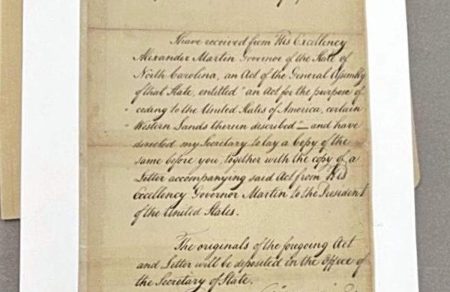 I have received from His Excellency
Alexander Martin Governor of the State of
North Carolina, an Act of the General Assembly
of that State, entitled "an Act for the purpose of
- ceding to the United States of America, certain
- Western Lands therein described"— and have
directed my Secretary to lay a Copy of the
same before you, together with the copy of a
Letter accompanying said Act from His
Excellency Governor Martin to the President
of the United States.
The originals of the foregoing Act
and Letter will be deposited in the Office of
the Secretary of State.